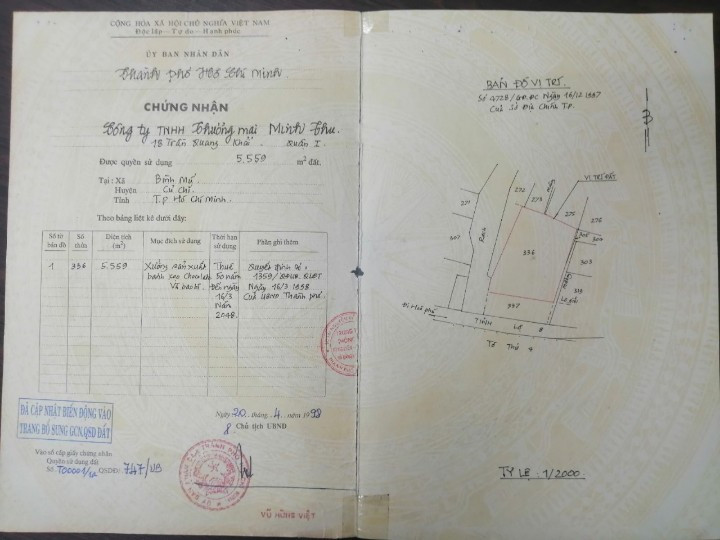 CỘNG HÒA XÃ HỘI CHỦ NGHĨA VIỆT NAM
Độc lập - Tự do - Hạnh phúc
ỦY BAN NHÂN DÂN
Thành phố Hồ Chí Minh
CHỨNG NHẬN
Công ty TNHH Thương mại Minh Thu.
18 Trần Quang Khải Quận I.
Được quyền sử dụng 5.559 m² đất.
Tại : Xã Bình Mỹ
Huyện Củ Chi
Tỉnh T.p Hồ Chí Minh
Theo bảng liệt kê dưới đây:
Số tờ bản đồ
Số thửa
Diện tích (m²)
Mục đích sử dụng
Thời hạn sử dụng
Phần ghi thêm
1 336 5.559
Xưởng sản xuất
bánh kẹo
Và bao bì.
Thuê
50 năm
Đến ngày
16/3
Năm
2048.
Quyết định số :
Ngày 16/3
Của UBND Thành phố.
Ngày 20 tháng 4 năm 1998
Chủ tịch UBND
ĐÃ CẬP NHẬT BIẾN ĐỘNG VÀO
TRANG BỔ SUNG GCN.QSD ĐẤT
Vào sổ cấp giấy chứng nhận
Quyền sử dụng đất
Số QSDĐ/ 747/UB
VŨ HÙNG VIỆT
BẢN ĐỒ VỊ TRÍ.
Ngày 16/12
Của Sở Địa Chính T.P.
VỊ TRÍ ĐẤT
272
273
275
276
271
307
Rạch
336
337
Đi Hà Phú
TỈNH Lộ 8
Tờ Thứ 4
TỶ LỆ : 1/2000